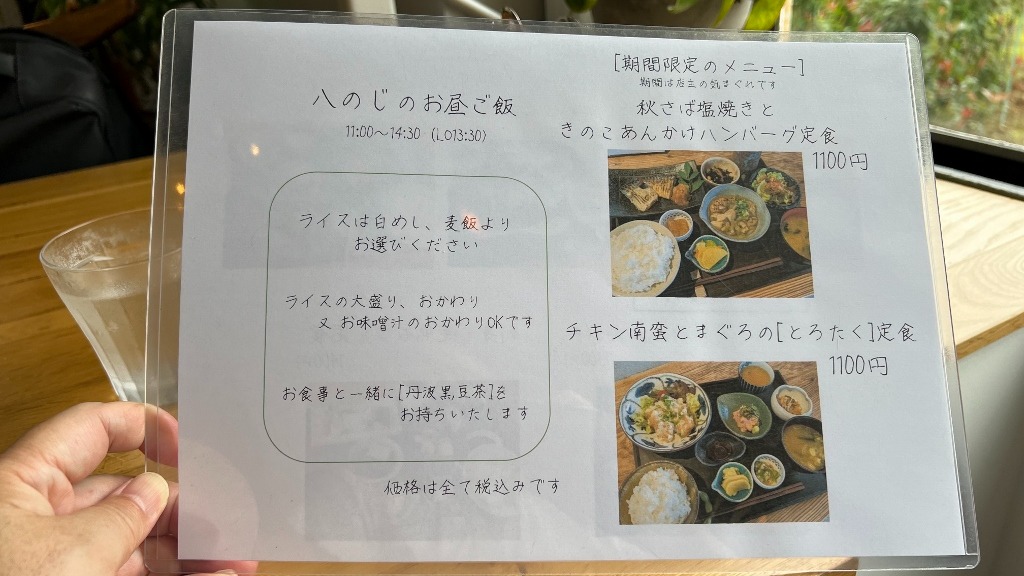 八のじのお昼ご飯
11:00～14:30 (LO13:30)
ライスは白めし、麦飯より
お選びください
ライスの大盛り、おかわり
又 お味噌汁のおかわりOKです
お食事と一緒に[丹波黒豆茶]を
お持ちいたします
価格は全て税込みです
[期間限定のメニュー]
期間は店主の気まぐれです
秋さば塩焼きと
きのこあんかけハンバーグ定食
1100円
チキン南蛮とまぐろの[とろたく]定食
1100円